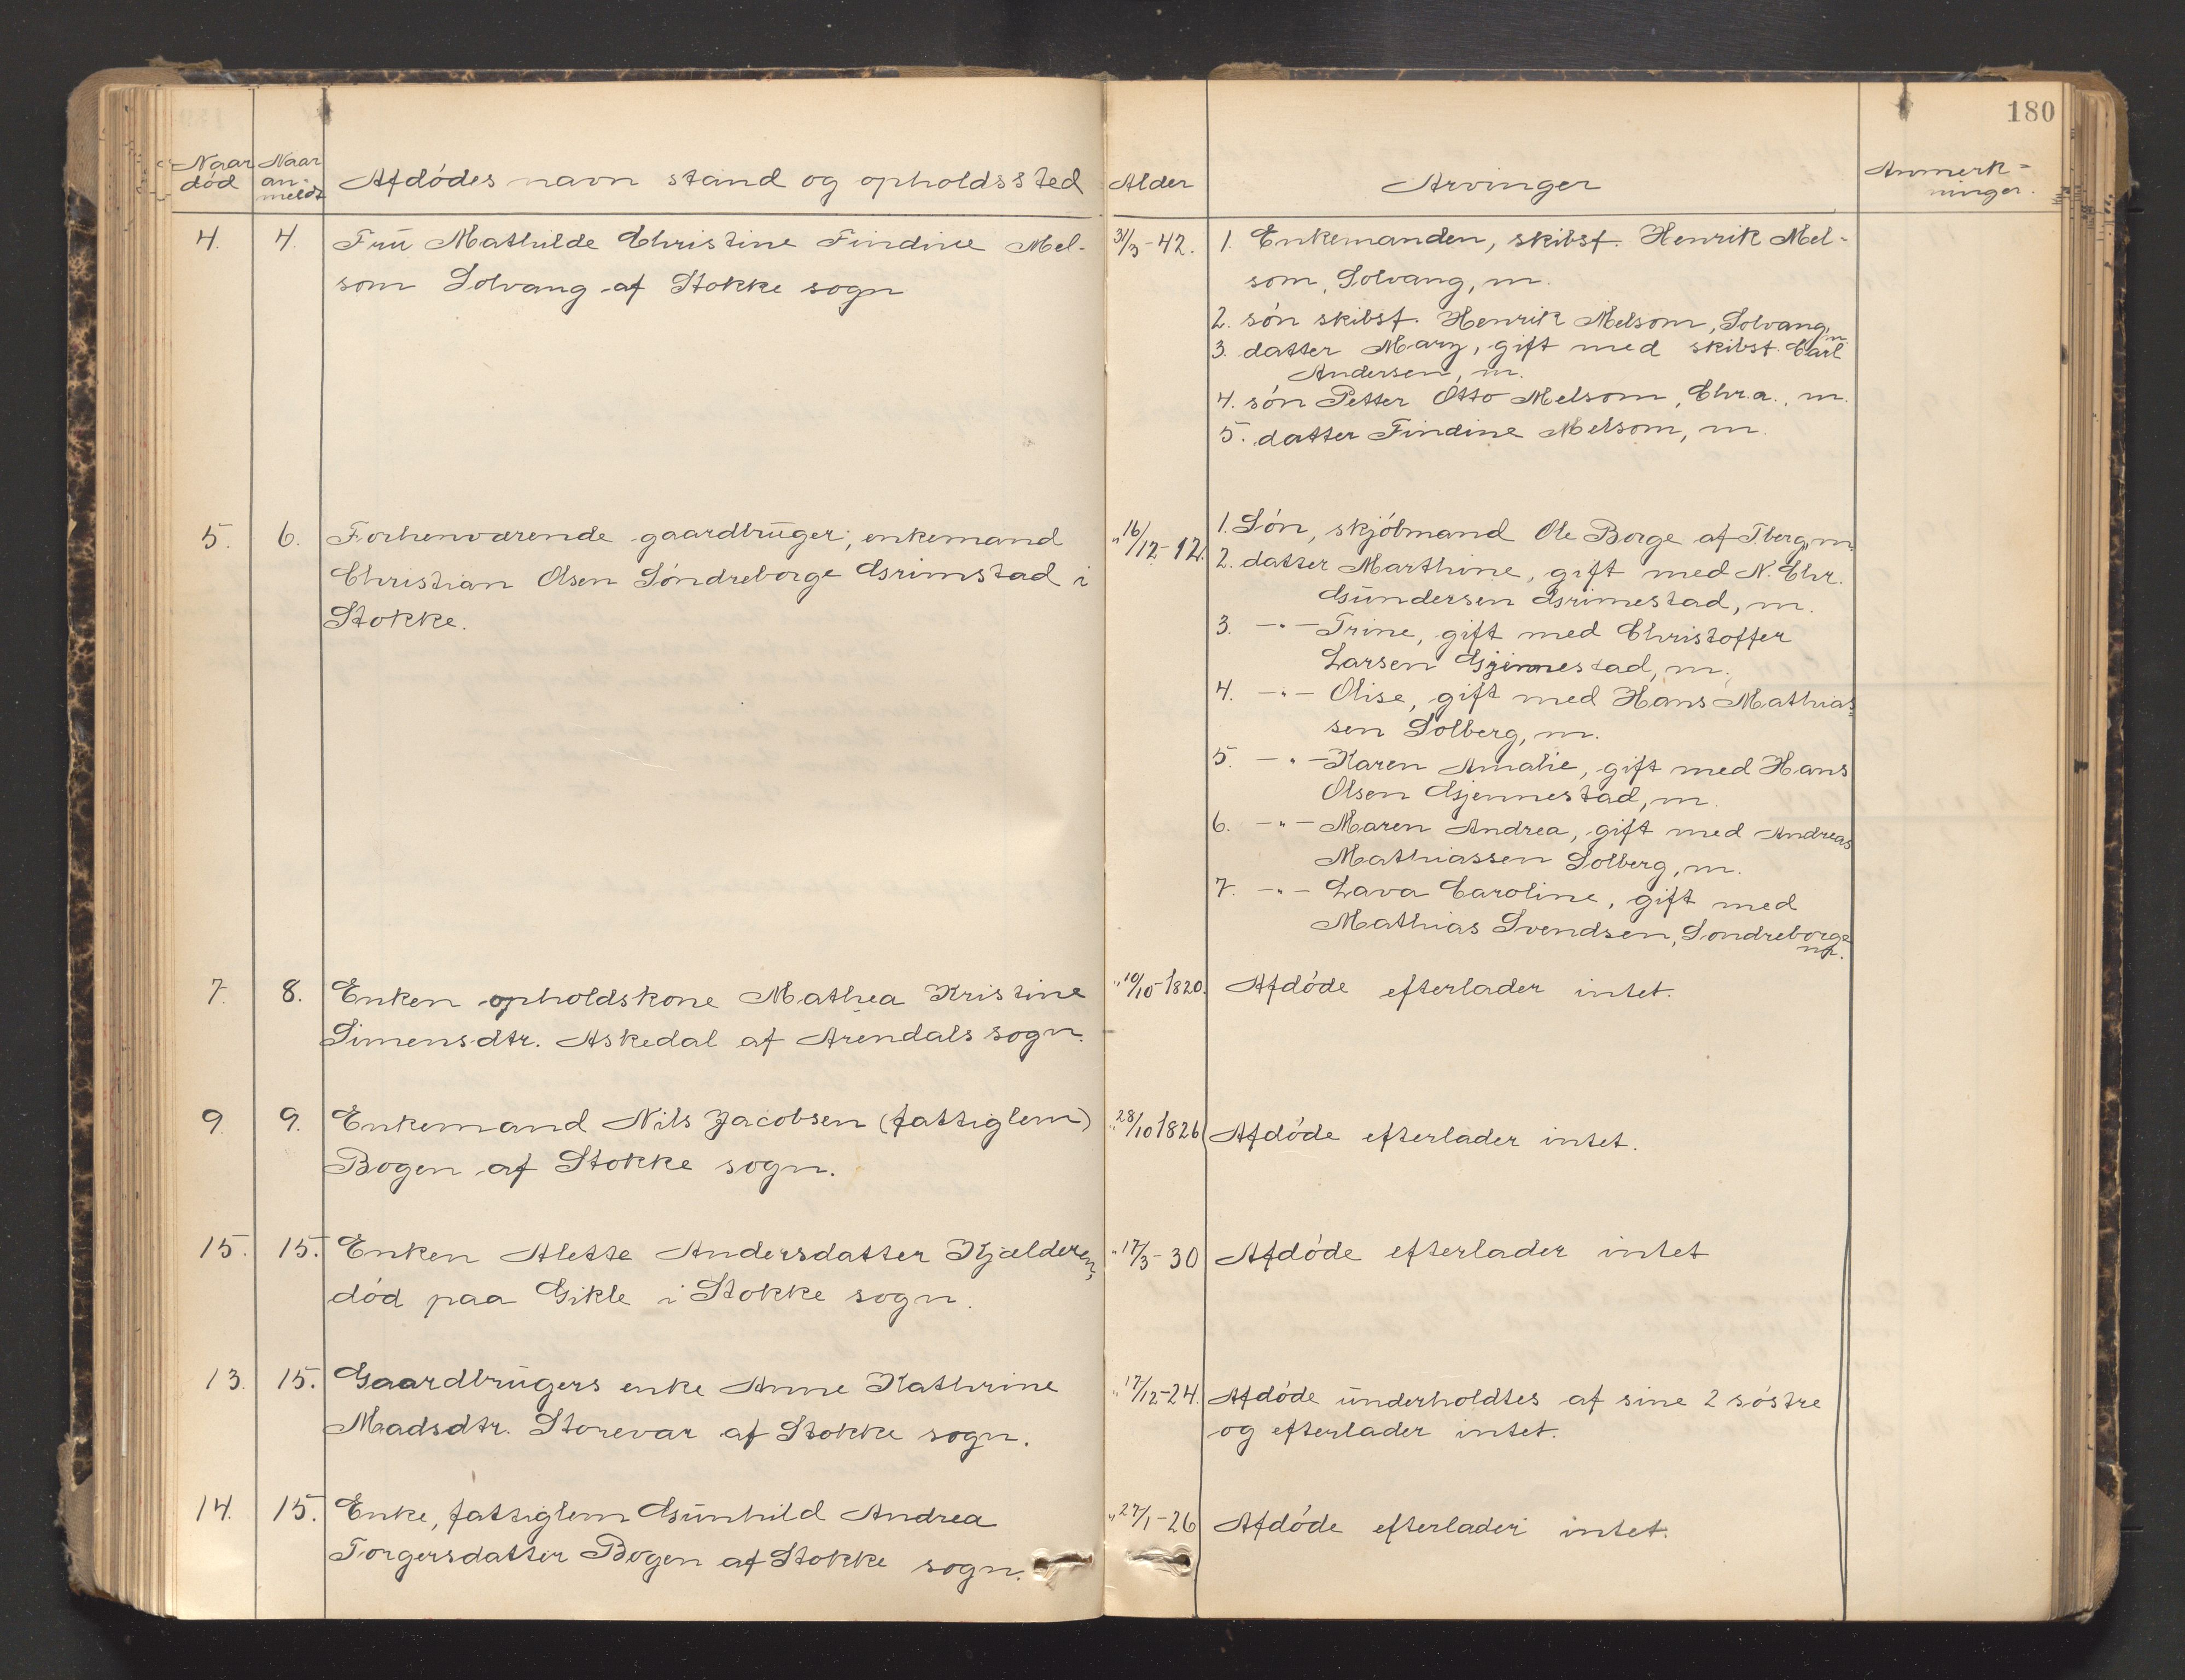 180
Naar død
Naar an-meldt
Afdødes navn stand og opholdssted
Alder
Arvinger
Anmerk=
ninger.
4. 4. Fru Mathilde Christine Findine Mel-
som Solvang af Stokke sogn
31/3-42.
1. Enkemanden, skibsf. Henrik Mel-
som, Solvang, m.
2. søn skibsf. Henrik Melsom, Solvang, m.
3. datter Mary, gift med skibsf. Carl
Andersen, m.
4. søn Petter Otto Melsom, Chr.a., m.
5. datter Findine Melsom, m.
5. 6. Forhenværende gaardbruger, enkemand
Christian Olsen Søndreborge Grimstad i
Stokke.
" 16/12-12.
1. Søn, skjøbmand Ole Borge af Tberg, m.
2. datter Marthine, gift med N. Chr.
Gundersen Grimestad, m.
3. -"- Trine, gift med Christoffer
Larsen Gjennestad, m.
4. -"- Olise, gift med Hans Mathias=
sen Solberg, m.
5. -"- Karen Amalie, gift med Hans
Olsen Gjennestad, m.
6. -"- Maren Andrea, gift med Andreas
Mathiassen Solberg, m.
7. -"- Lava Caroline, gift med
Mathias Svendsen, Søndreborge
m.
7. 8. Enken opholdskone Mathea Kristine
Simensdtr. Askedal af Arendals sogn.
" 10/10-1820.
Afdøde efterlader intet.
9. 9. Enkemand Nils Jacobsen (fattiglem)
Bogen af Stokke sogn.
" 28/10 1826
Afdøde efterlader intet.
15. 15. Enken Alette Andersdatter Kjælderen,
død paa Gikle i Stokke sogn.
" 17/3-30
Afdøde efterlader intet
13. 15. Gaardbrugers enke Anne Kathrine
Madsdtr. Storevar af Stokke sogn.
" 17/12-24.
Afdøde underholdtes af sine 2 søstre
og efterlader intet.
14. 15. Enke, fattiglem Gunhild Andrea
Torgersdatter Bogen af Stokke sogn.
" 27/1-26
Afdøde efterlader intet.